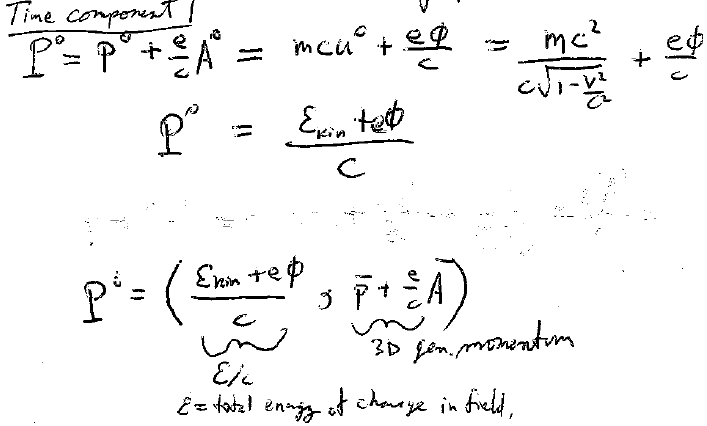 Time component!
P⁰ = p⁰ + e/c A⁰ = mcu⁰ + eϕ/c = mc²/(c√(1-v²/c²)) + eϕ/c
P⁰ = (ℰkin + eϕ)/c
Pⁱ = ((ℰkin + eϕ)/c , p̄ + e/c Ā)
3D gen. momentum
ℰ/c
ℰ = total energy of charge in field,